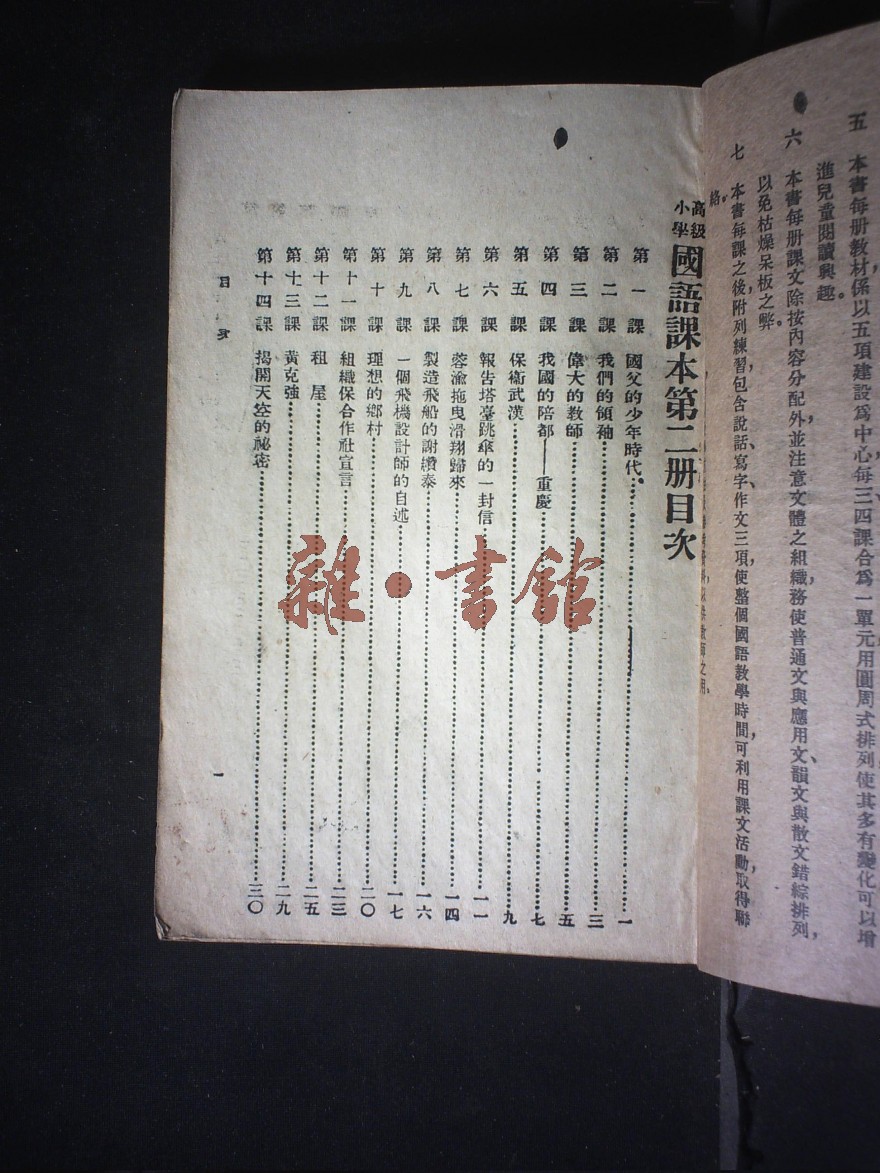 五　本書每册教材係以五項建設爲中心，每三四課合爲一單元，用圓周式排列，使其多有變化，可以增
進兒童閱讀興趣。
六　本書每册課文除按內容分配外，並注意文體之組織，務使普通文與應用文、韻文與散文錯綜排列，
以免枯燥呆板之弊。
七　本書每課之後，附列練習，包含說話、寫字、作文三項，使整個國語教學時間可利用課文活動，取得聯
絡。
高級小學國語課本第二册目次
第一課　國父的少年時代……一
第二課　我們的領袖……三
第三課　偉大的教師……五
第四課　我國的陪都——重慶……七
第五課　保衛武漢……九
第六課　報告塔臺跳傘的一封信……一一
第七課　蓉渝拖曳滑翔歸來……一四
第八課　製造飛船的謝纘泰……一六
第九課　一個飛機設計師的自述……一七
第十課　理想的鄉村……二〇
第十一課　組織保合作社宣言……二三
第十二課　租屋……二五
第十三課　黃克強……二九
第十四課　揭開天空的祕密……三〇
目次
一
雜·書館